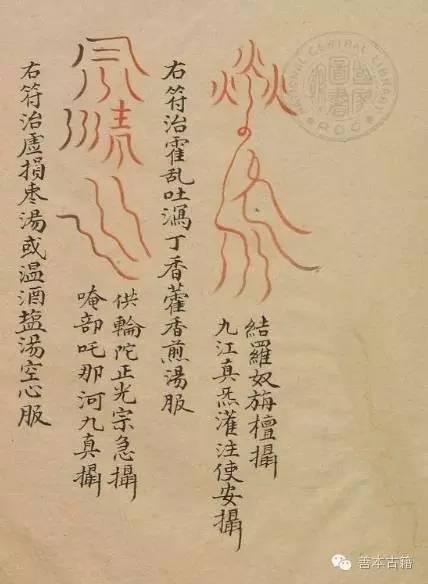 結羅奴旃檀攝
九江真炁灌注使安攝
右符治霍乱吐瀉丁香藿香煎湯服
供輪陀正光宗急攝
唵部吒那河九真攝
右符治虛損枣湯或温酒盐湯空心服
NATIONAL CENTRAL LIBRARY
R.O.C.
善本古籍